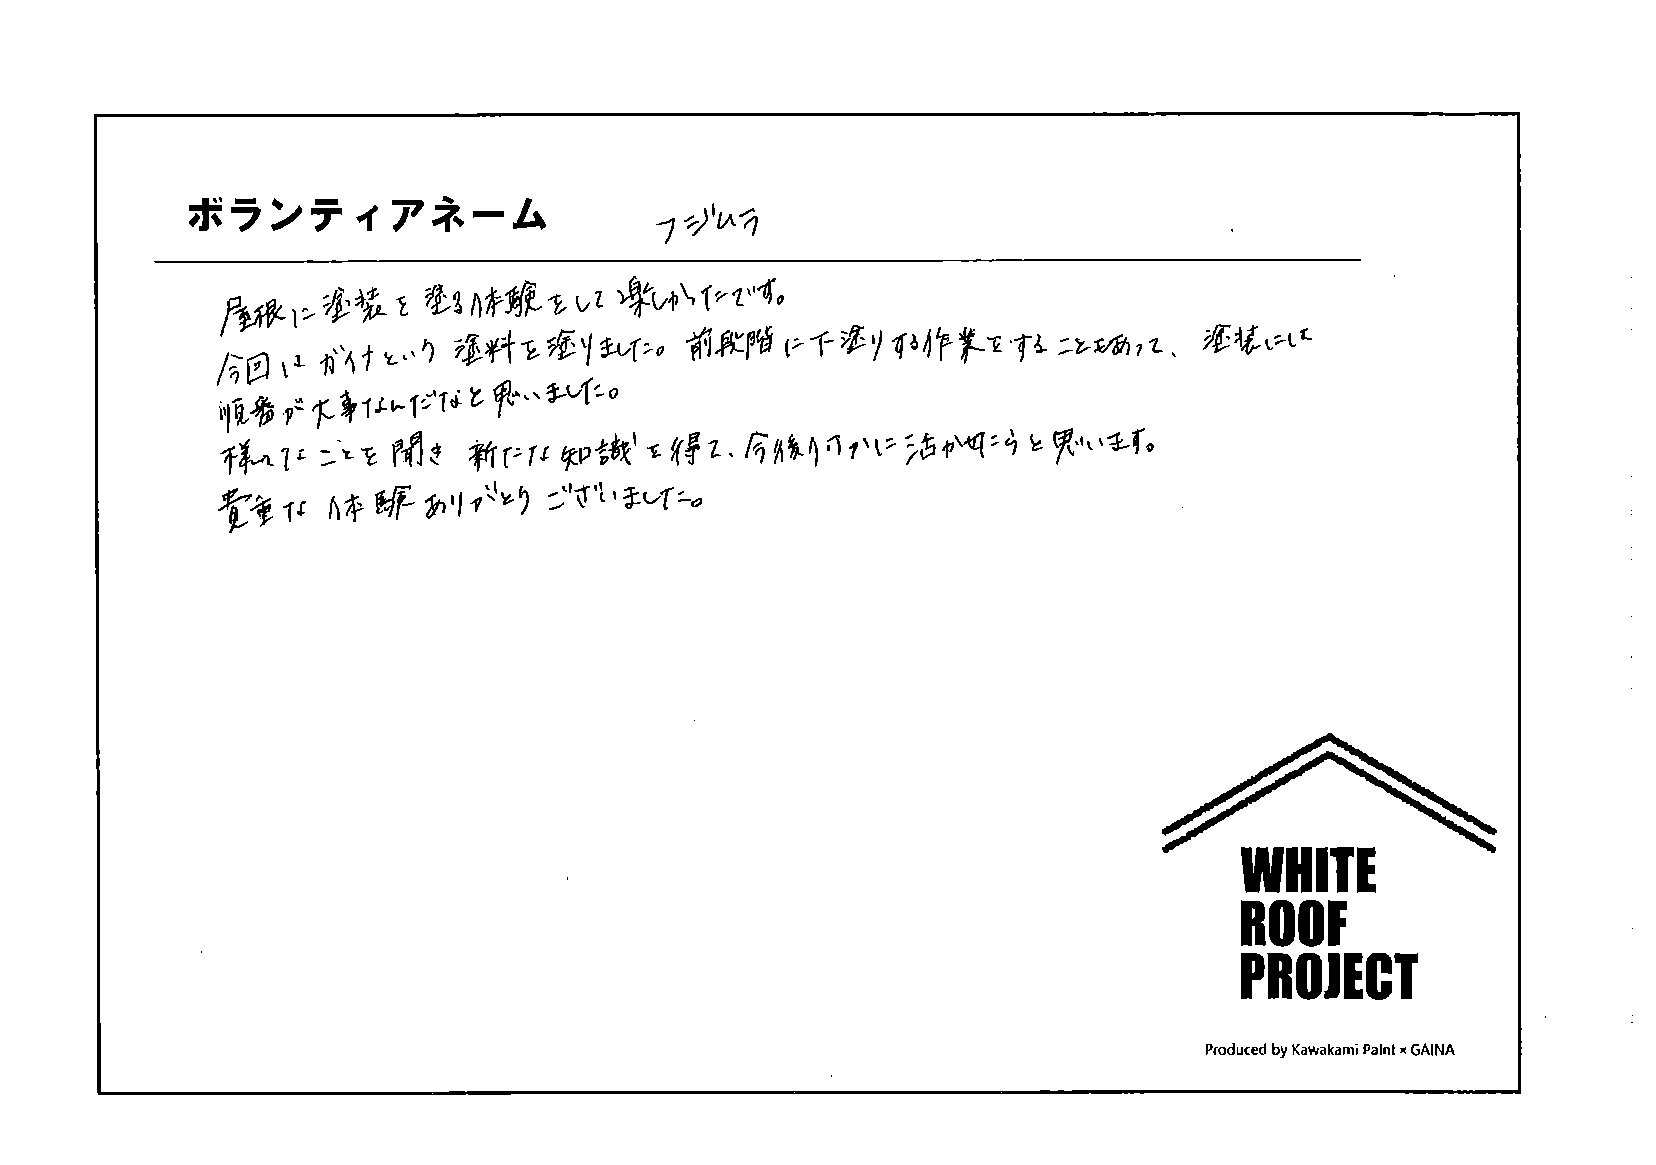 ボランティアネーム フジムラ
屋根に塗装を塗る体験をして楽しかったです。
今回はガイナという塗料を塗りました。前段階に下塗りする作業をすることもあって、塗装には
順番が大事なんだなと思いました。
様々なことを聞き新たな知識を得て、今後
に活かせようと思います。
貴重な体験ありがとうございました。
WHITE
ROOF
PROJECT
Produced by Kawakami Paint × GAINA